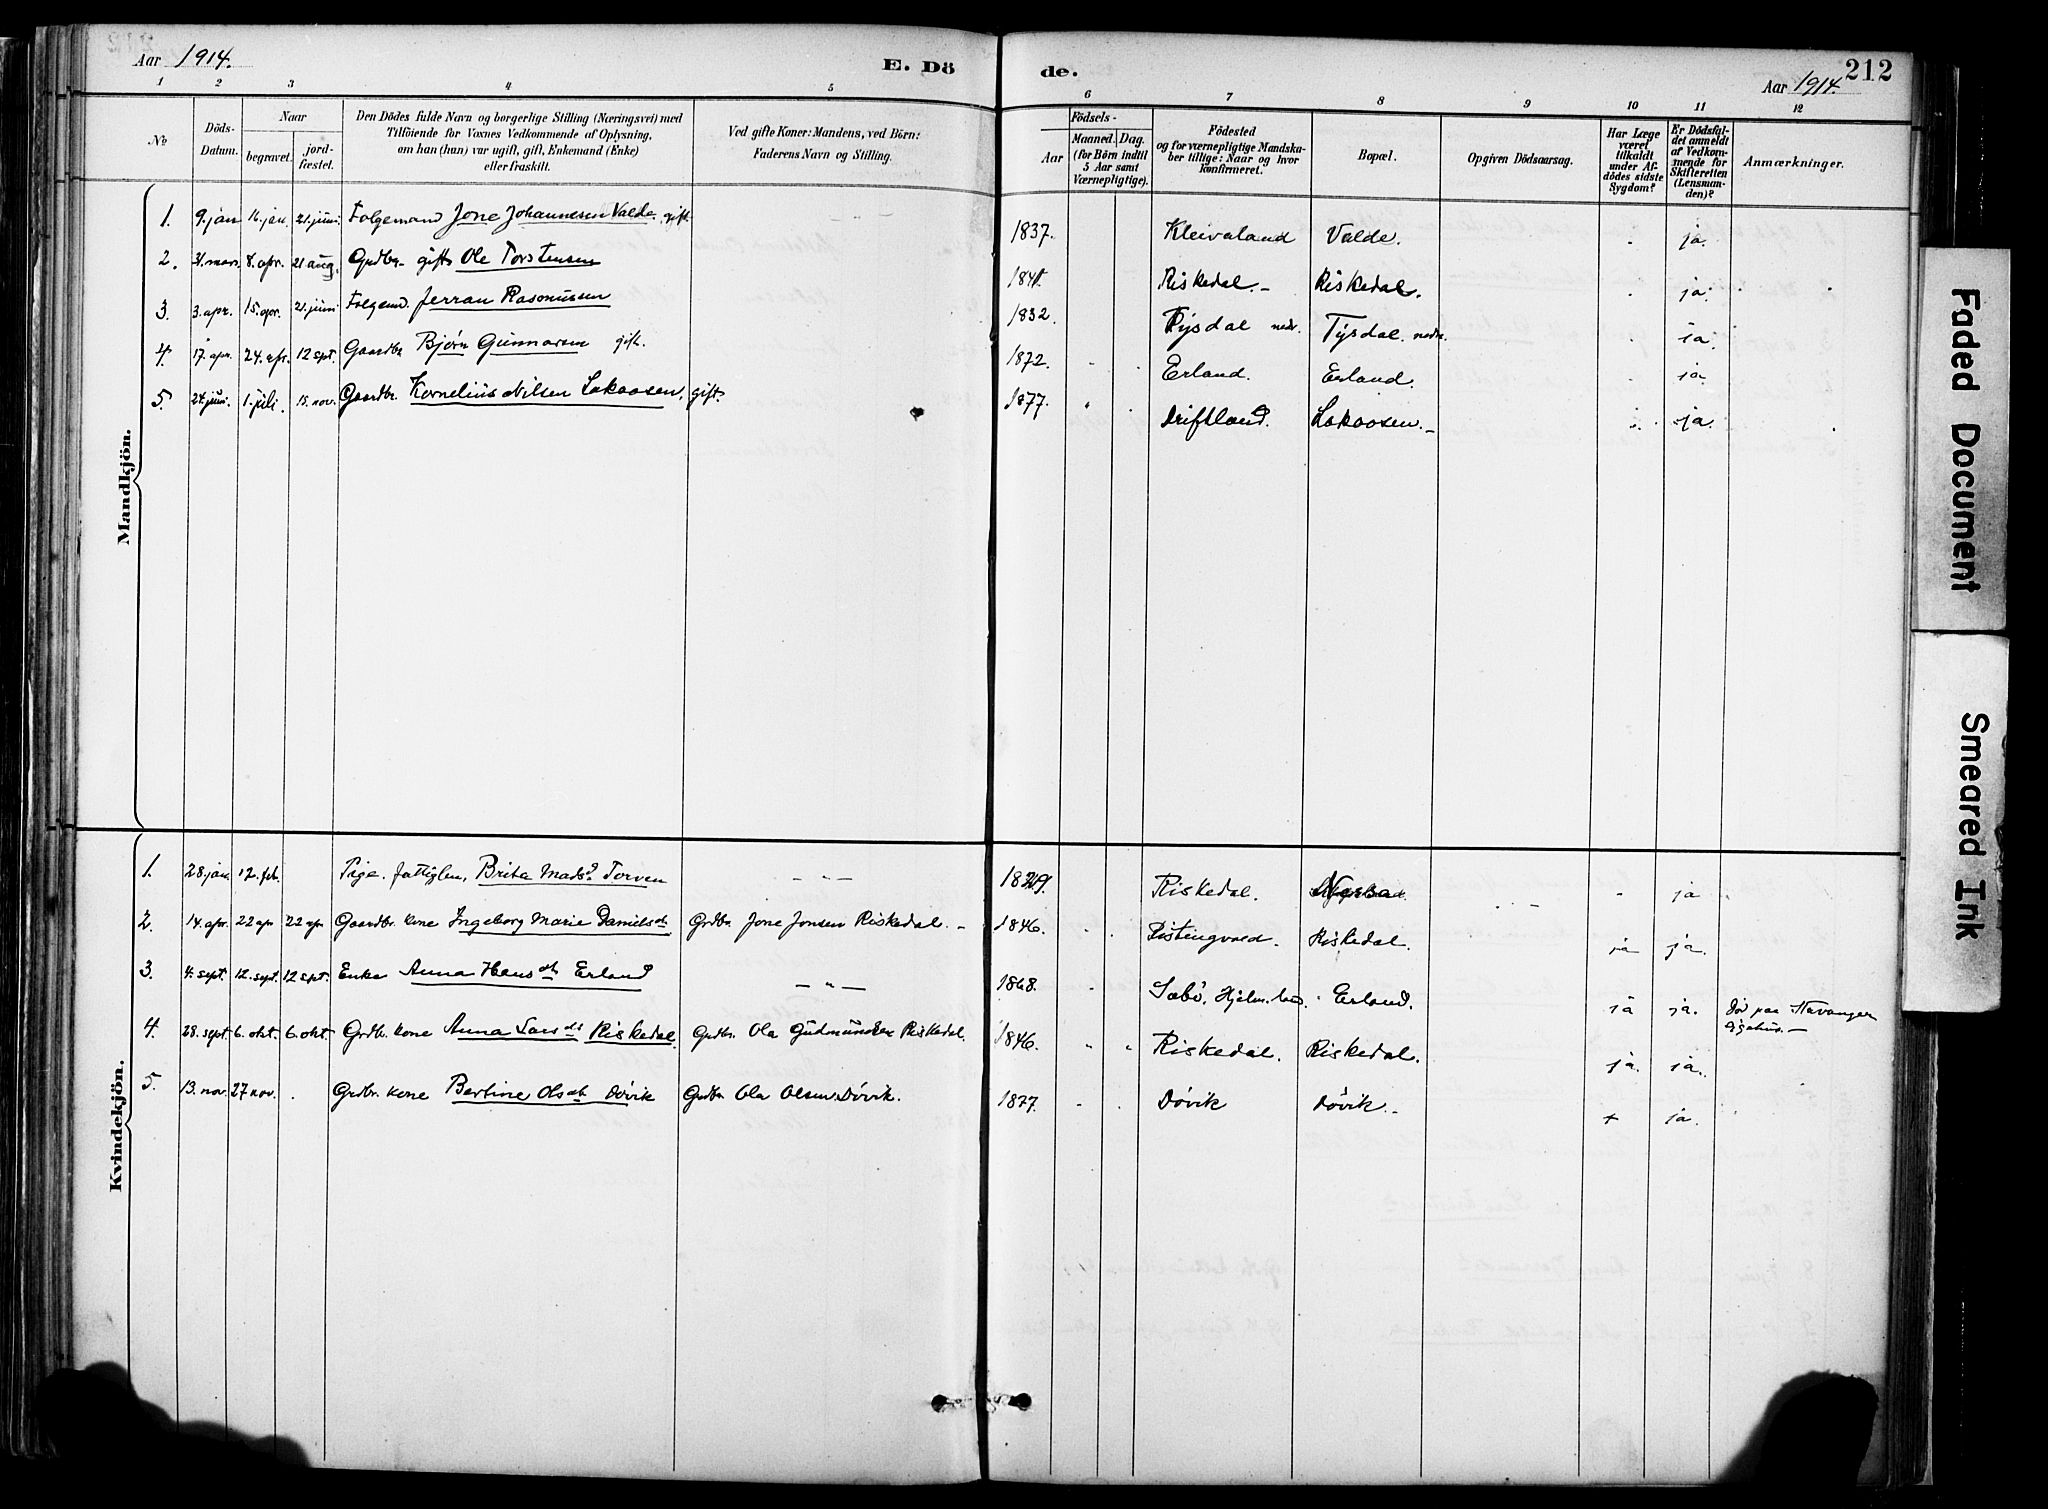 Aar 1914. E. Dö de. Aar 1914. 212
1 2 3 4 5 6 7 8 9 10 11 12
No Döds-Datum. Naar begravet. jordfæstet. Den Dödes fulde Navn og borgerlige Stilling (Næringsvei) med Tilföiende for Voxnes Vedkommende af Oplysning, om han (hun) var ugift, gift, Enkemand (Enke) eller fraskilt. Ved gifte Koner: Mandens, ved Börn: Faderens Navn og Stilling. Födsels- Aar Maaned. Dag. (for Börn indtil 5 Aar samt Værnepligtige). Födested og for værnepligtige Mandskaber tillige: Naar og hvor konfirmeret. Bopæl. Opgiven Dödsaarsag. Har Læge været tilkaldt under Afdödes sidste Sygdom? Er Dödsfaldet anmeldt af Vedkommende for Skifteretten (Lensmanden)? Anmærkninger.
Mandkjön.
1. 9. jan 16. jan. 21. juni. Folgemand Jone Johannesen Valde. gift. 1837. Kleivaland Valde. ja.
2. 31. mars. 8. apr. 21 aug. Grdbr. gift Ole Torstensen 1841. Riskedal. Riskedal. ja.
3. 3. apr. 15. apr. 21. juni Folgemd. Jerran Rasmussen 1832. Tysdal nedr. Tysdal nedr. ja.
4. 17. apr. 24. apr. 12 spt. Gaardbr Bjørn Gunnarsen gift. 1872. Erland. Erland. ja.
5. 24. juni. 1. juli. 15. nov. Gaardbr. Kornelius Nilsen Lakaosen, gift. 1877. Driftland. Lakaosen. ja.
Kvindekjön.
1. 28 jan. 12. feb. Pige. fattiglem, Brita Madsd. Torven 1829. Riskedal. ja
2. 14. apr. 22 apr 22 apr Gaardbr. kone Ingeborg Marie Danielsdt Grdbr. Jone Jonsen Riskedal. 1846. Pistingvoed. Riskedal. ja ja.
3. 4. sept. 12. sept. 12 spt. Enke Anna Hansdt Erland 1868. Sæbö, Hjelm.land. Erland. ja ja. Död paa Stavanger sygehus.
4. 28. sept. 6. okt. 6. okt. Grdbr. kone Anna Larsdt Riskedal. Grdbr. Ola Gudmundsen Riskedal. 1846. Riskedal. Riskedal. ja. ja.
5. 13. nov. 27 nov. Grdbr. kone Bertine Olsdt Døvik Grdbr Ola Olsen Døvik. 1877. Døvik Døvik. + ja.
Faded Document
Smeared Ink